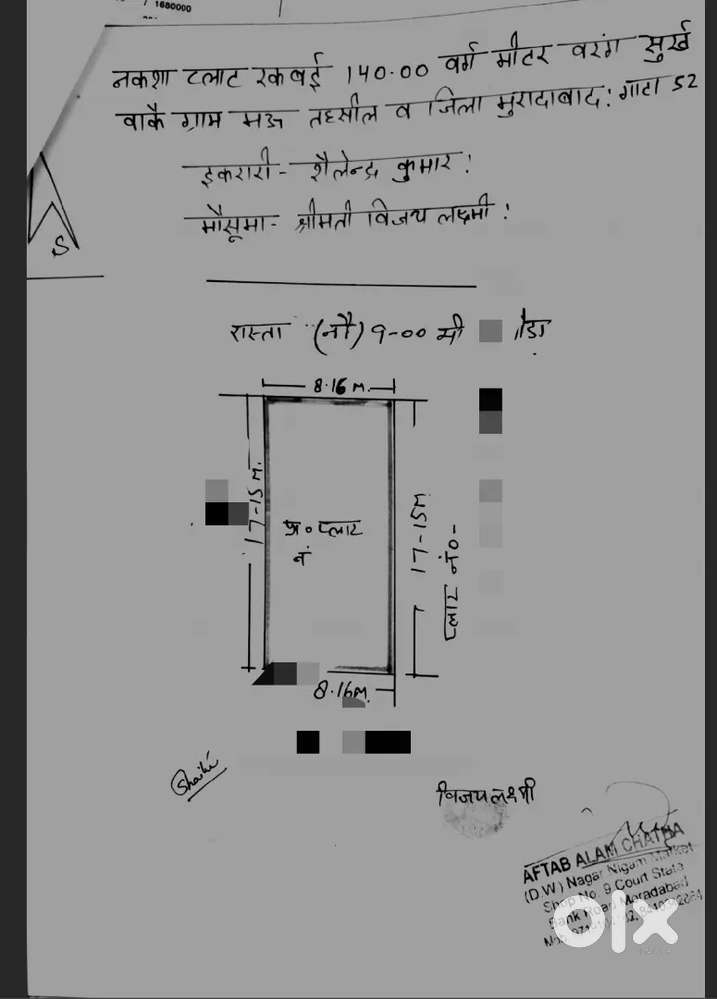 1680000
नकशा प्लाट रकबई 140.00 वर्ग मीटर वरंग सुर्ख
वाकै ग्राम मऊ तहसील व जिला मुरादाबाद: गाटा 52
इकरारी- शैलेन्द्र कुमार!
मौसूमा- श्रीमती विजय लक्ष्मी!
S
रास्ता (नौ) 9-00 मी
8.16 M.
17-15 M.
प्लाट
नं
17-15M
प्लाट नं०-
8.16M.
विजय लक्ष्मी
AFTAB ALAM CHATHA
(D.W) Nagar Nigam Market
Shop No. 9 Court State
Bank Road Moradabad
olx